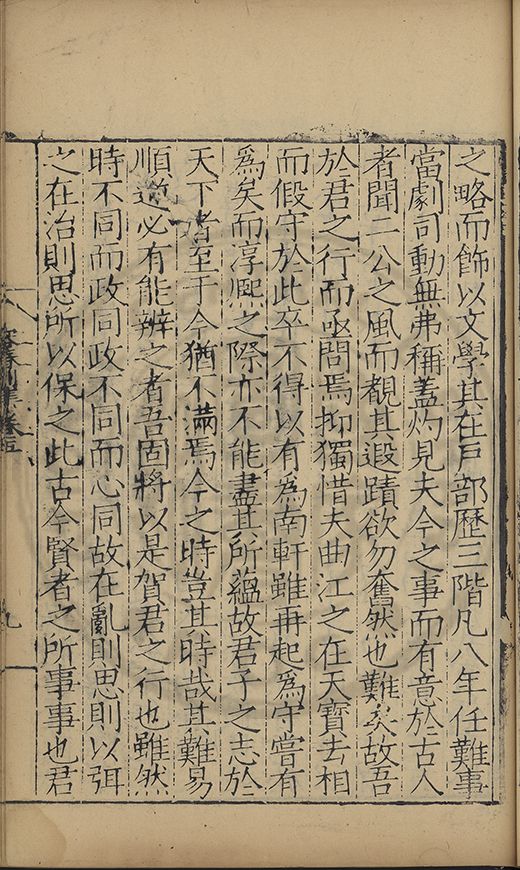 之略而飾以文學其在戸部歷三階凡八年任難事
當劇司動無弗稱蓋灼見夫今之事而有意於古人
者聞二公之風而覩其遐蹟欲勿奮然也難矣故吾
於君之行而亟問焉抑獨惜夫曲江之在天寳去相
而假守於此卒不得以有為南軒雖再起為守嘗有
為矣而淳熈之際亦不能盡其所蘊故君子之志於
天下者至于今猶不滿焉今之時豈其時哉其難易
順逆必有能辨之者吾固將以是賀君之行也雖然
時不同而政同政不同而心同故在亂則思則以弭
之在治則思所以保之此古今賢者之所事事也君
九